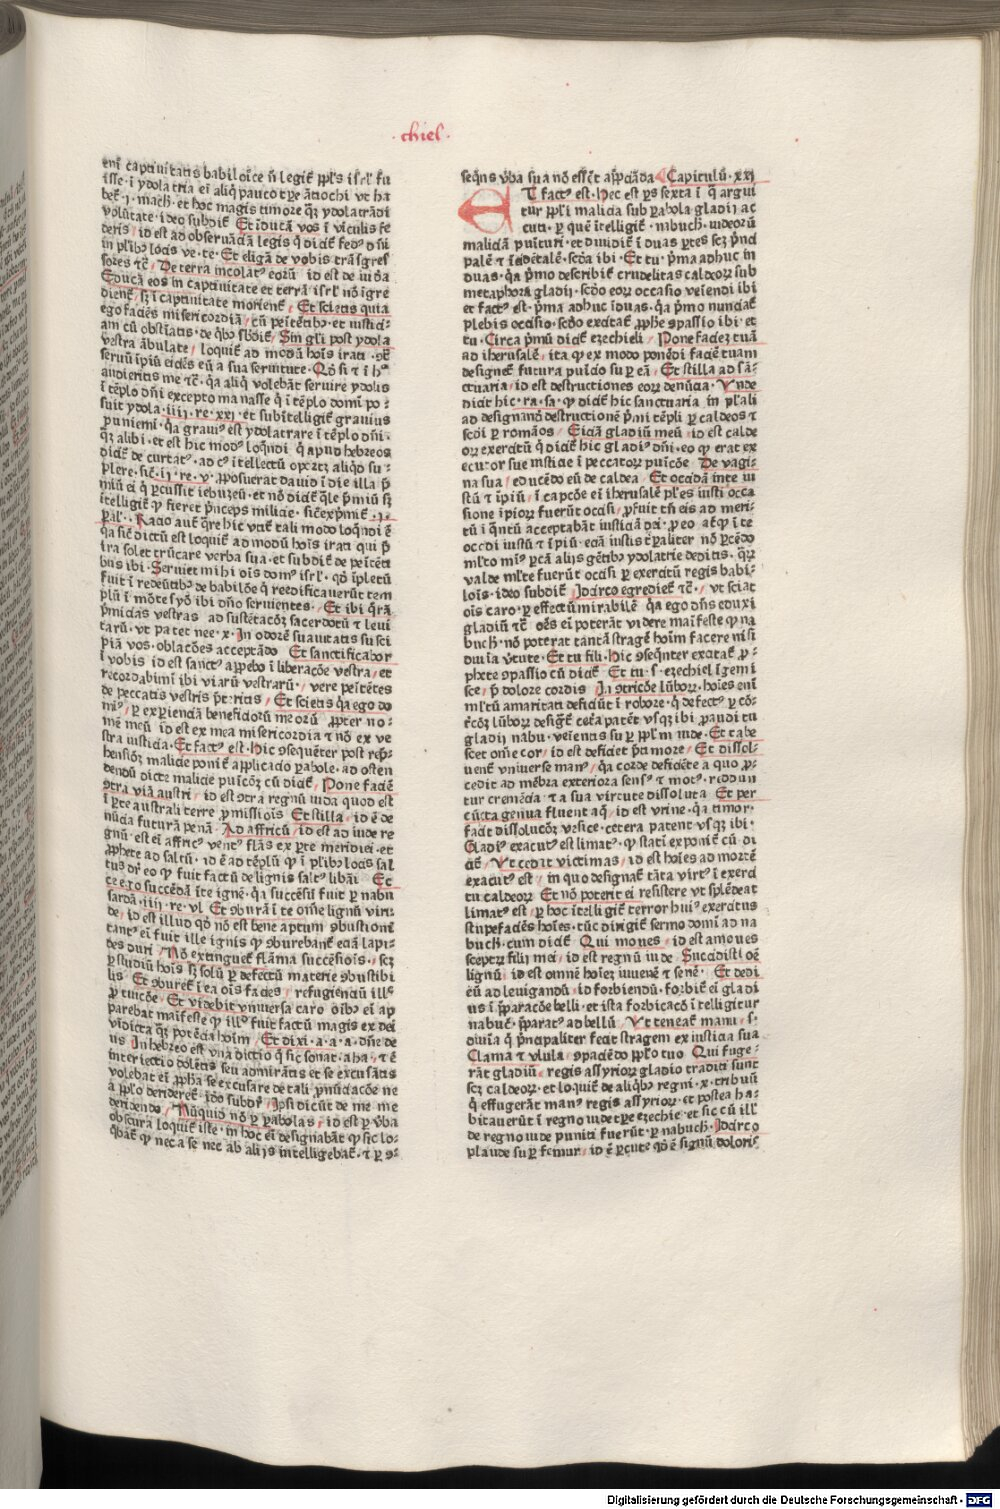 · chiel ·
eni captiuitatis babiloice n̄ legit̄ ppl's isrl' fu
isse · i ydolatria ei aliq̄ pauco tp̄e ātiochi vt ha
bet̄ · j · mach · et hoc magis timore q̄ȝ ydolatrādi
volūtate · ideo subdit̄ Et īducā vos ī vīculis fe
deris / id est ad obseruāciā legis
in pl'ibꝰ locis ve · te · Et eligā de vobis trāsgres
sores ⁊c̄ / De terra incolatꝰ eorū id est de
Educā eos in captiuitate et terrā isrl' nō īgre
dient̄ / sȝ ī captiuitate morient̄ / Et scietis quia
ego faciēs misericordiā / cū peītētibꝰ · et iusticiā
am cū obstīatis · de qͥbꝰ sbdit̄ / Singl'i post ydola
vestra ābulate / loquit̄ ad modū hoīs irati
seruū īpiū eiciēs eū a sua seruitute
audieritis me ⁊c̄ · qa aliq̄ volebāt seruire ydolis
ī tēplo dn̄i excepto manasse q̄ ī tēplo domī po-
suit ydola · iiij · re · xxj · et subītelligit̄ grauius
puniemī · qa grauiꝰ est ydolatrare ī tēplo dn̄i ·
q̄ȝ alibi · et est hic modꝰ loq̄ndi q̄ apud hebreos
dicit̄ decurtatꝰ · ad cꝰ ītellectū oportȝ aliqd su-
plere · sic̄ · ij · re · v · pposuerat dauid ī die illa p̄
miū ei q̄ percussit iebuzeū · et nō dicit̄ q̄le p̄miū sȝ
ītelligit̄ ꝙ fieret p̄nceps milicie · sic̄ exp̄mit̄ · j ·
par · Racio aut̄ q̄re hic vtit̄ tali modo loq̄ndi ē
qa sic̄ dictū est loquit̄ ad modū hoīs irati qui p̄
ira solet trūcare verba sua · et subdit̄ de peitēti
bus ibi · Seruiet mihi oīs domꝰ isrl' · qō īpletū
fuit ī redeūtibꝰ de babilōe q̄ reedificauerūt tem
plū ī mōte syō ibi dn̄o seruientes · Et ibi q̄rā
p̄micias vestras ad sustētacōȝ sacerdotū ⁊ leui
tarū · vt patet nee · x · In odorē suauitatis susci
piā vos · oblacōes acceptādo Et sanctificabor
ī vobis id est sanctꝰ appebo ī liberacōe vestra / et
recordabimī ibi viarū vestrarū · vere peītētes
de peccatis vestris Et scietis qa ego do
mꝰ / per experienciā beneficiorū meorū propter no-
mē meū id est ex mea misericordia ⁊ nō ex ve
stra iusticia · Et factꝰ est · Hic ꝯsequēter post rep̄-
hensiōȝ malicie ponit̄ applicacio parabole · ad osten
dendū dicte malicie puīcōȝ cū dicit̄ / Pone faciē
ꝯtra viā austri / id est ꝯtra regnū iuda quod est
ī parte australi terre pmissiōis Et stilla · id ē de
nūcia futurā penā · Ad affricū / id est ad iude re
gnū · est ei affricꝰ ventꝰ flās ex parte meridiei · et
pphete ad saltū · id ē ad tēplū qͥ ī pl'ibꝰ locis sal
tus dr̄ eo ꝙ fuit factū de lignis saltꝰ libāi Ec
ce ego succēdā ī te ignē · qa succēsū fuit per nabu
sardā · iiij · re · vl Et ꝯburā ī te om̄e lignū viri-
de / id est illud qō nō est bene aptum ꝯbustioni
tantꝰ ei fuit ille ignis ꝙ ꝯburebant̄ eciā lapi-
des duri / Nō extinguet̄ flāma succēsiōis · scȝ
per studiū hoīs sȝ solū per defectū materie ꝯbustibi
lis Et ꝯburet̄ ī ea oīs facies / refugienciū illꝰ
p tuicōe · Et videbit vniuersa caro oibꝰ ei ap
parebat maīfeste ꝙ illꝰ fuit factū magis ex dei
vīdicta q̄ȝ potēcia hoīm / Et dixi · a · a · a · dn̄e de
us · In hebreo est vna dictio q̄ sic̄ sonat · aha · ⁊ ē
interiectio dolētis seu admirātis et se excusātis
volebat ei ppha se excusare de tali pnūciacōe ne
a pplo derideret̄ · ideo subdr̄ / Ipsi dicūt de me me
deridendo · Nūquid nō per parabolas / id est per vba
obscura loquit̄ iste · in hoc ei designabāt ꝙ sic lo-
q̄bat̄ ꝙ nec a se nec ab alijs intelligebat̄ · ⁊ per ꝯ-
seq̄ns vba sua nō essēt app̄ciāda Capitulū · xxj
ET factꝰ est · Hec est ps sexta ī q̄ argui
tur ppli malicia sub parabola gladij ac
cuti · per quē ītelligit̄ · nabuch · iudeorū
maliciā puīturi · et diuidit̄ ī duas partes scȝ p̄nci
palē ⁊ īcidētalē · scd̄a ibi · Et tu · p̄ma adhuc in
duas · qa p̄mo describit̄ crudelitas caldeorū sub
metaphora gladij · scd̄o eorum occasio veiendi ibi
et factꝰ est · p̄ma adhuc īduas · qa p̄mo nunciat̄
plebis occisio · scd̄o excitat̄ pphe ꝯpassio ibi · et
tu · Circa p̄mū dicit̄ ezechieli / Pone faciēz tuā
ad iherusalē / ita ꝙ ex modo ponēdi faciē tuam
designet̄ futura puicio super eā / Et stilla ad sā-
ctuaria / id est destructiones eorum denūcia · Vnde
dicit hic · ra · sa · ꝙ dicit̄ hic sanctuaria in pl'ali
ad designandū destructionē p̄mi tēpli per caldeos ⁊
scd̄i per romāos / Eiciā gladiū meū / id est calde
orum exercitū q̄ dicit̄ hic gladiꝰ dn̄i · eo ꝙ erat ex
ecutor sue iusticie ī peccatorum puicōe De vagi-
na sua / educēdo eū de caldea / Et occidā īn te iu
stū ⁊ īpiū / ī capcōe ei iherusalē pl'es iusti occa
sione īpiorum fuerūt occisi / pfuit tn̄ eis ad meri-
tū ī q̄ntū acceptabāt iusticiā dei · pro eo at̄ ꝙ ī te
occidi iustū ⁊ īpiū · eciā iustis tpaliter nō parcēdo
ml'to miꝰ parcā alijs gētibꝰ ydolatrie deditis · q̄ȝ
valde ml'te fuerūt occisi per exercitū regis babi-
loīs · ideo subdit̄ / Idcirco egrediet̄ ⁊c̄ / vt sciat
oīs caro · per effectū mirabilē qa ego dn̄s eduxi
gladiū ⁊c̄ oēs ei poterāt videre maīfeste ꝙ na
buch · nō poterat tantā stragē hoīm facere nisi
diuīa v̄tute · Et tu fili · Hic ꝯseq̄nter excitat̄ p-
phete ꝯpassio cū dicit̄ Et tu · s · ezechiel īgemi
sce / p̄ dolore cordis In ꝯtricōe lūborum · hoīes eni
ml'tū amaritati deficiūt ī robore · q̄ defectꝰ per cō-
t̄cōȝ lūborum desigt̄ · cetera patēt vsqȝ ibi · paudi tu
gladij nabu · veīencis super pplm iude · Et tabe
scet om̄e cor / id est deficiet p̄ amore / Et dissol-
uent̄ vniuerse manꝰ / qa corde deficiēte a quo p-
cedit ad mēbra exteriora sensꝰ ⁊ motꝰ · reddun
tur tremēcia ⁊ a sua virtute dissoluta Et per
cūcta genua fluent aq̄ / id est vrine · qa timor ·
facit dissolucōȝ vesice · cetera patent vsqȝ ibi ·
Gladiꝰ exacutꝰ est limatꝰ · ꝙ stati exponit̄ cū di
cit̄ / Vt cedit victimas / id est hoīes ad mortē
exacutꝰ est / in quo designat̄ tāta virtꝰ ī exerci
tu caldeorum Et nō poterit ei resistere vt splēdeat
limatꝰ est / per hoc ītelligit̄ terror huiꝰ exercitus
stupefaciēs hoīes · tūc dirigit̄ sermo domī ad na
buch · cum dicit̄ Qui moues / id est amoues
sceptrum filij mei / id est regnū iude Succidisti oē
lignū / id est omnē hoīez iuuenē ⁊ senē · Et dedi
eū ad leuigandū / id forbiendū · forbit̄ ei gladi
us ī p̄paracōe belli · et ista forbicacō ītelligitur
nabuc̄ · p̄paratꝰ ad bellū / Vt teneat̄ manu / s ·
diuīa q̄ p̄ncipaliter fecit stragem ex iusticia sua
Clama ⁊ vlula / ꝯpaciēdo pplo tuo Qui fuge-
rāt gladiū / regis assyriorum gladio traditi sunt
scȝ caldeorum · et loquit̄ de aliqͥbꝰ regni · x · tribuū
q̄ effugerāt manꝰ regis assyriorum · et postea ha-
bitauerūt ī regno iude tpe ezechie · et sic cū ill'
de regno iude puniti fuerūt · per nabuch · Idcirco
plaude super femur / id ē percute qō ē signū doloris
Digitalisierung gefördert durch die Deutsche Forschungsgemeinschaft - DFG